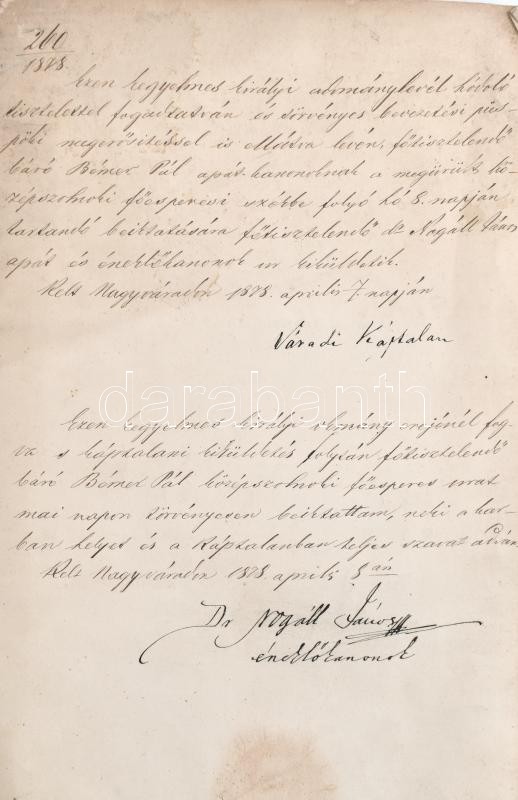 260
1878.
Ezen kegyelmes királyi adománylevél hódoló
tisztelettel fogadtatván és törvényes bevezetési püs-
pöki megerősitéssel is ellátva levén, főtisztelendő
báró Bémer Pál apát-kanonoknak a megürült kö-
zépszolnoki főesperesi székbe folyó hó 8. napján
tartandó beiktatására főtisztelendő dr Nogáll János
apát és éneklőkanonok ur kiküldetik.
Kelt Nagyváradon 1878. április 7. napján
Váradi Káptalan
darabanth
Ezen kegyelmes királyi adomány erejénél fog-
va s káptalani kiküldetés folytán főtisztelendő
báró Bémer Pál középszolnoki főesperes urat
mai napon törvényesen beiktattam, neki a kar-
ban helyet és a káptalanban teljes szavazatot adván.
Kelt Nagyváradon 1878. április 8 án
Dr Nogáll János
éneklőkanonok